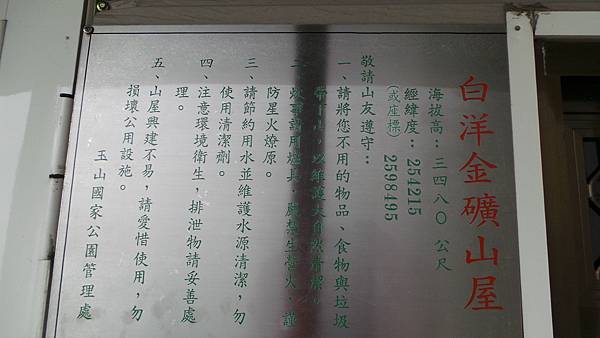 白洋金礦山屋
海拔高：三四八〇公尺
經緯度：254215
(或座標) 2598495
敬請山友遵守：
一、請將您不用的物品、食物與垃圾
帶下山，以維護大自然清潔。
二、炊事請用爐具，嚴禁生營火，謹
防星火燎原。
三、請節約用水並維護水源清潔，勿
使用清潔劑。
四、注意環境衛生，排泄物請妥善處
理。
五、山屋興建不易，請愛惜使用，勿
損壞公用設施。
玉山國家公園管理處